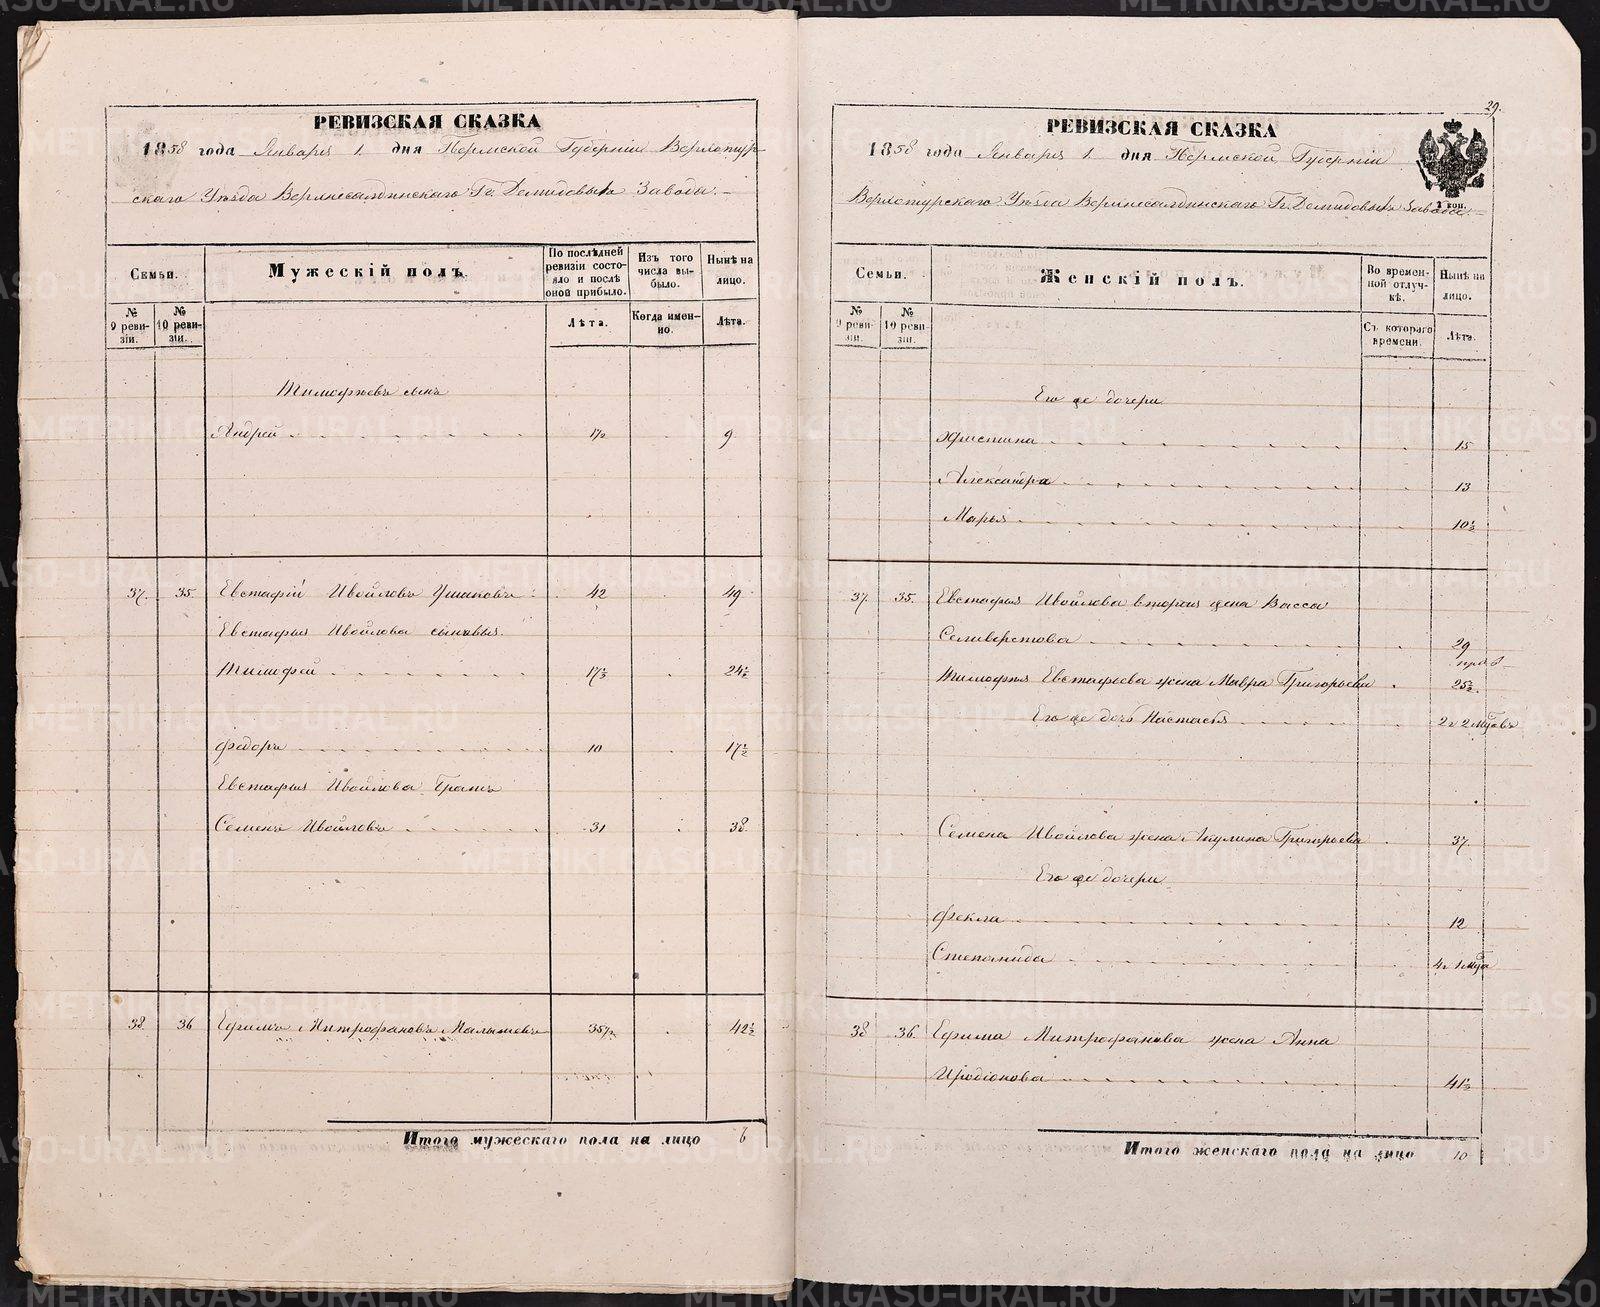 РЕВИЗСКАЯ СКАЗКА
1858 года Января 1. дня Пермской Губерніи Верхотур-
скаго Уѣзда Верхнесалдинскаго Гг. Демидовыхъ Завода.
Семьи.
Мужескій полъ.
По послѣдней ревизіи состо-яло и послѣ оной прибыло.
Изъ того числа вы-было.
Нынѣ на лицо.
№ 9 реви-зіи.
№ 10 реви-зіи.
Лѣта.
Когда имен-но.
Лѣта.
Тимофѣевъ сынъ
Андрей 1½ 9
37. 35. Евстафій Ивойловъ Ушаковъ 42 49
Евстафья Ивойлова сыновья.
Тимофей 17½ 24½
Федоръ 10 17½
Евстафья Ивойлова Братъ
Семенъ Ивойловъ 31 38
38 36 Ефимъ Митрофановъ Малышевъ 35½ 42½
Итого мужескаго пола на лицо 6
29.
РЕВИЗСКАЯ СКАЗКА
1858 года Января 1. дня Пермской Губерніи
Верхотурскаго Уѣзда Верхнесалдинскаго Гг. Демидовыхъ Завода.
2 коп.
Семьи.
Женскій полъ.
Во времен-ной отлуч-кѣ.
Нынѣ на лицо.
№ 9 реви-зіи.
№ 10 реви-зіи.
Съ котораго времени.
Лѣта.
Его же дочери
Христина 15
Александра 13
Марья 10½
37. 35. Евстафья Ивойлова вторая жена Васса
Селиверстова 29
Тимофея Евстафьева жена Мавра Григорьева 25½
Его же дочь Настасья 2 г 2 мѣсяцъ
Семена Ивойлова жена Акулина Григорьева 37
Его же дочери
Фекла 12
Степанида 4 г 1 мѣся
38 36. Ефима Митрофанова жена Анна
Иродіонова 41½
Итого женскаго пола на лицо 10
METRIKI.GASO-URAL.RU